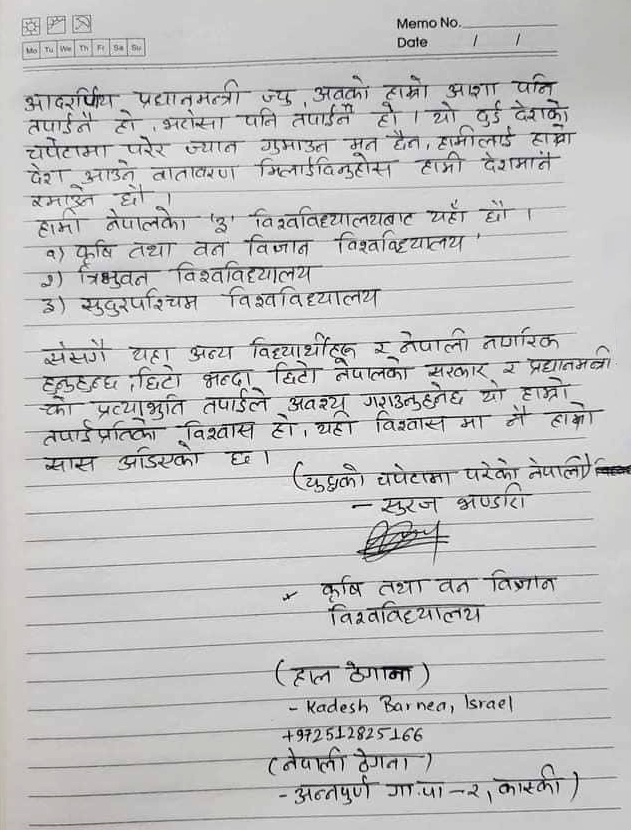 Memo No.
Mo Tu We Th Fr Sa Su
Date / /
आदरर्णिय प्रधानमन्त्री ज्यु, अबको हाम्रो आशा पनि
तपाईनै हो, भरोसा पनि तपाईनै हो । यो दुई देशको
चपेटामा परेर ज्यान गुमाउन मन छैन, हामीलाई हाम्रो
देश आउने वातावरण मिलाईदिनुहोस हामी देशमानै
रमाउने छौ ।
हामी नेपालका '३' विश्वविद्यालयबाट यहाँ छौ ।
१) कृषि तथा वन विज्ञान विश्वविद्यालय '
२) त्रिभुवन विश्वविद्यालय
३) सुदुरपश्चिम विश्वविद्यालय
सँसगै यहा अन्य विद्यार्थीहरू र नेपाली नागरिक
हुनुहुन्छ, छिटो भन्दा छिटो नेपालको सरकार र प्रधानमन्त्री
को प्रत्याभुति तपाईले अवश्य गराउनुहुनेछ यो हाम्रो
तपाईप्रतिको विश्वास हो, यही विश्वास मा नै हाम्रो
सास अडिएको छ।
(युद्धको चपेटामा परेको नेपाली)
- सुरज भण्डारी
कृषि तथा वन विज्ञान
विश्वविद्यालय
(हाल ठेगाना)
- Kadesh Barnea, Israel
+972512825166
(नेपाली ठेगना)
- अन्नपुर्ण गा.पा - २, कास्की)